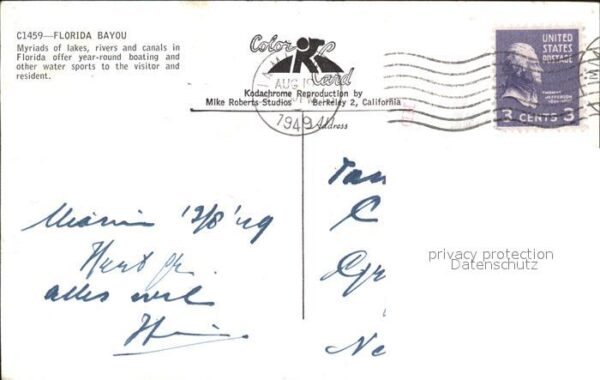 C1459—FLORIDA BAYOU
Myriads of lakes, rivers and canals in
Florida offer year-round boating and
other water sports to the visitor and
resident.
Color
Card
Kodachrome Reproduction by
Mike Roberts Studios Berkeley 2, California
AUG
1949
Address
UNITED
STATES
POSTAGE
3 CENTS 3
12/8 '49
alles
C
Ne
privacy protection
Datenschutz